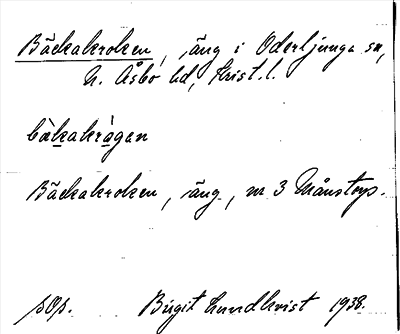 Bäckakroken, äng i Oderljunga sn,
N. Åsbo hd, Krist. l.
bàkakrågan
Bäckakroken, äng, nr 3 Månstorp.
sOp. Birgit Lundkvist 1938.